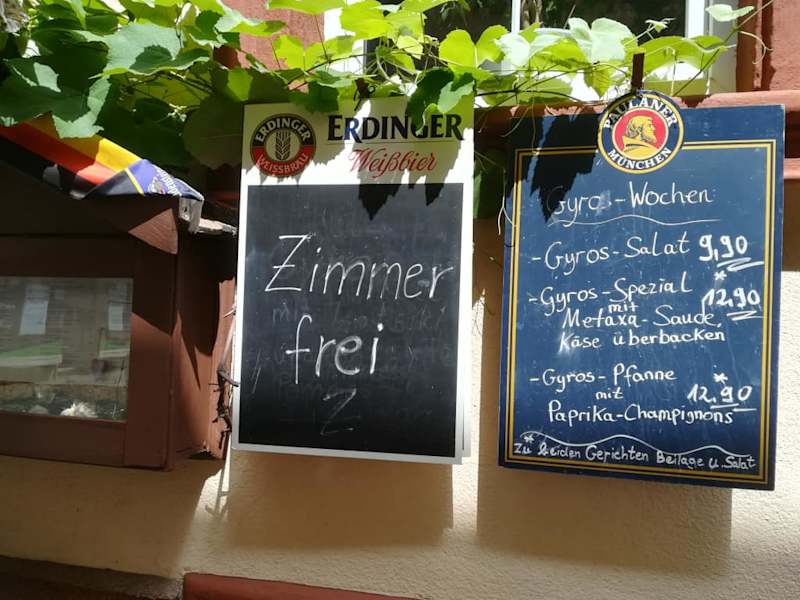 ERDINGER
WEISSBRÄU
ERDINGER
Weißbier
Zimmer
frei
2
PAULANER
MÜNCHEN
Gyros-Wochen
-Gyros-Salat 9,90
-Gyros-Spezial * 12,90
mit
Metaxa-Sauce,
Käse überbacken
-Gyros-Pfanne * 12.90
mit
Paprika-Champignons
* Zu beiden Gerichten Beilage u. Salat